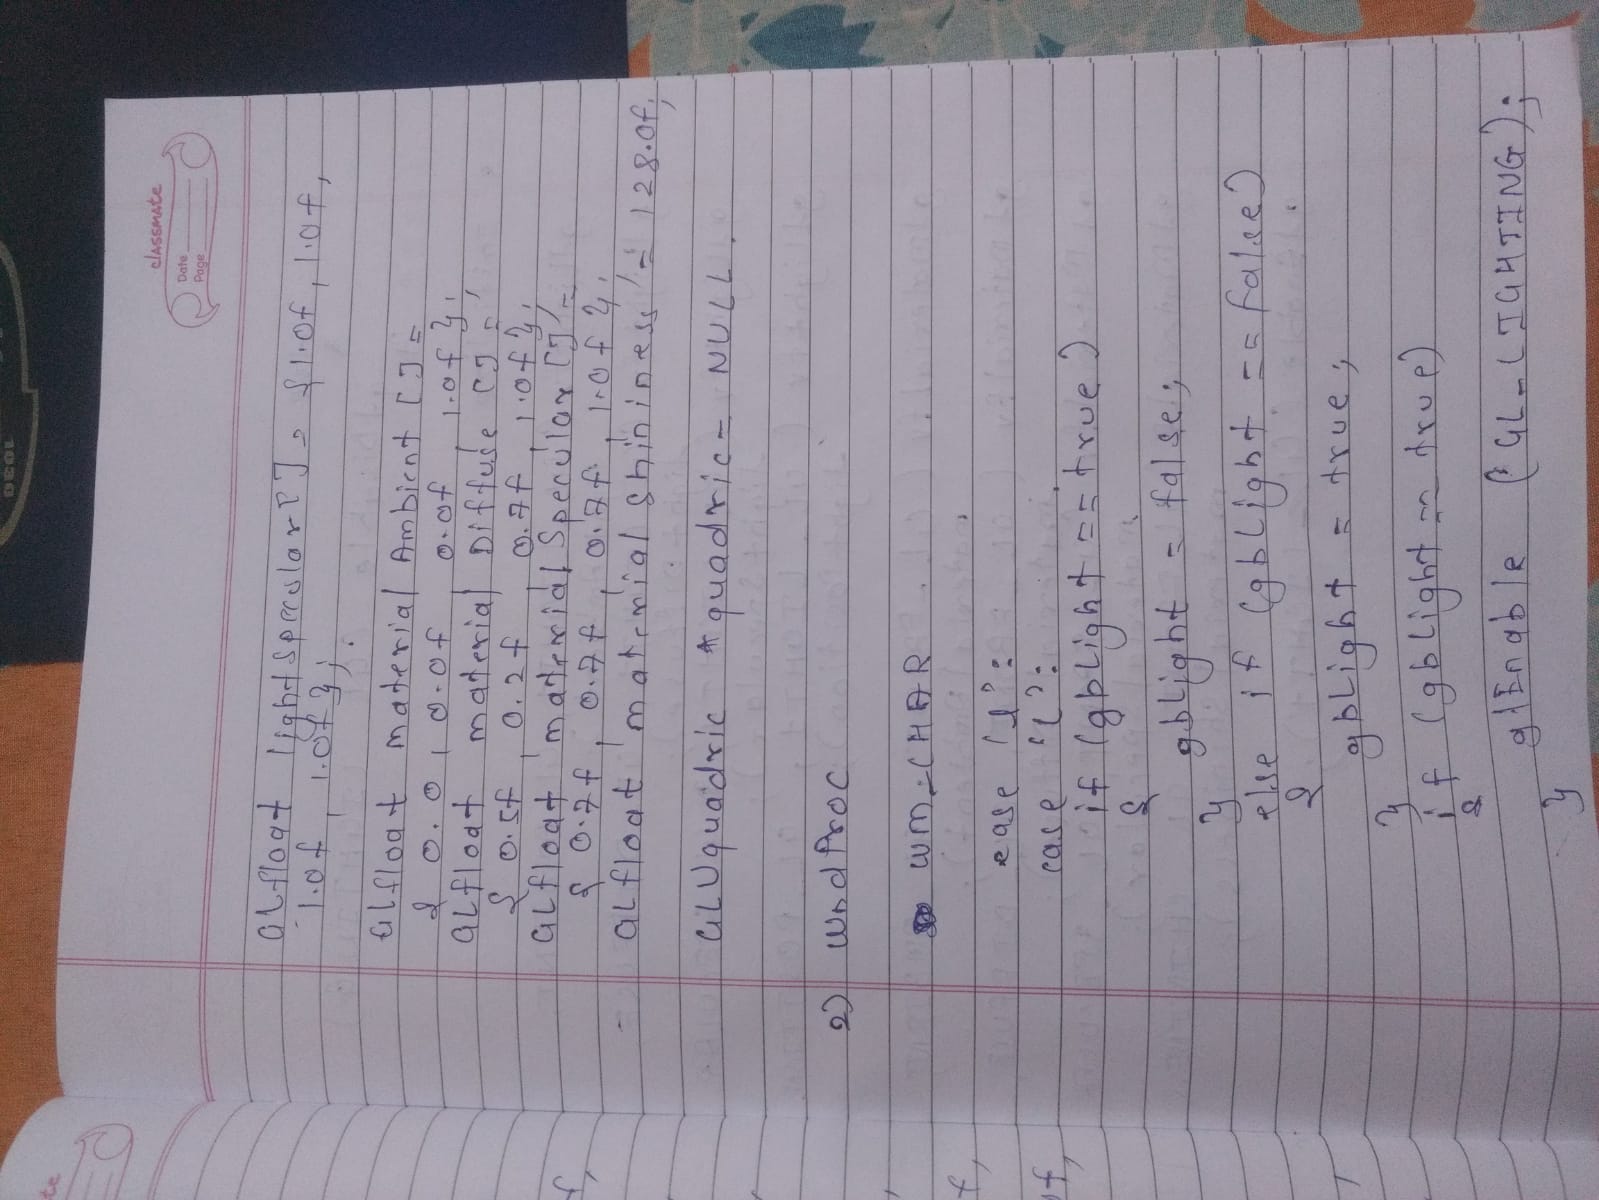 1030
classmate
Date
Page
GLfloat lightSpecular[] = {1.0f, 1.0f,
1.0f, 1.0f};
GLfloat materialAmbient[] =
{ 0.0, 0.0f, 0.0f, 1.0f };
GLfloat materialDiffuse[] =
{ 0.5f, 0.2f, 0.7f, 1.0f };
GLfloat materialSpecular[] =
{ 0.7f, 0.7f, 0.7f, 1.0f };
GLfloat materialShininess = 128.0f;
GLUquadric *quadric = NULL.
2) WndProc
WM_CHAR
case 'l':
case 'L':
if (gbLight == true)
{
gbLight = false;
}
else if (gbLight == false)
{
gbLight = true;
}
if (gbLight == true)
{
glEnable (GL_LIGHTING);
}